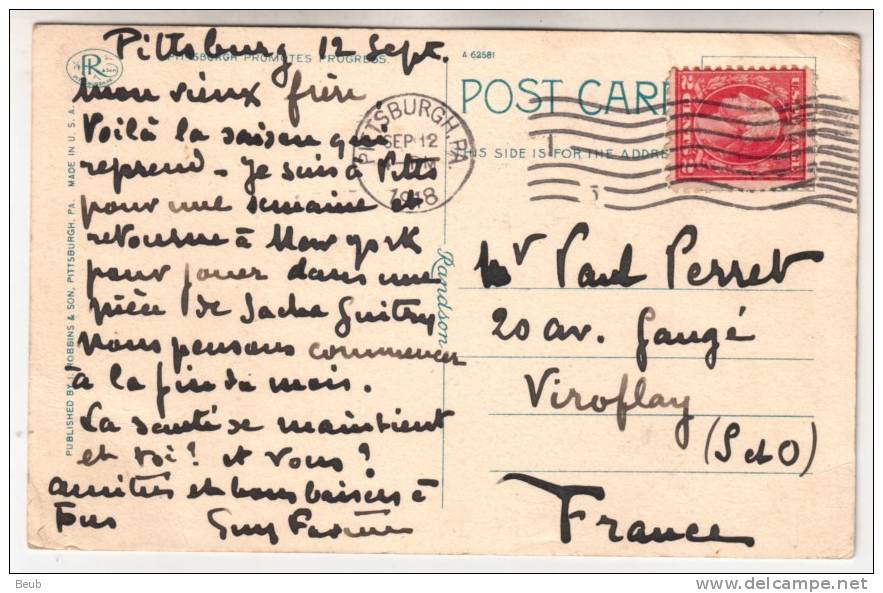 Pittsburg 12 Sept.
PITTSBURGH PROMOTES PROGRESS.
A 62581
POST CARD
THIS SIDE IS FOR THE ADDRE
PITTSBURGH, PA.
SEP 12
1918
mon vieux frère
Voilà la saison qui
reprend - Je suis à Pitts
pour une semaine et
retourne à New york
pour jouer dans une
pièce de Sacha Guitry
nous pensons commencer
à la fin du mois.
La santé se maintient
et toi? et vous?
amitiés et bons baisers à
Tous Guy
Mr Paul Perret
20 av. Gaugé
Viroflay
(S et O)
France
Randson
PUBLISHED BY I. ROBBINS & SON, PITTSBURGH, PA. MADE IN U.S.A.
Beub
www.delcampe.net